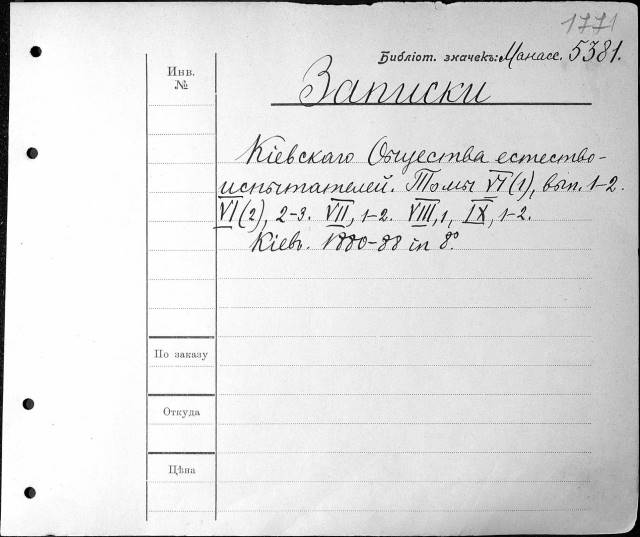 1771
Библіот. значекъ: Манасс. 5381.
Инв.
№
Записки
Кіевскаго Общества естество-
испытателей. Томы VI(1), вып. 1-2.
VI(2), 2-3. VII, 1-2. VIII, 1, IX, 1-2.
Кіевъ. 1880-88 in 8°
По заказу
Откуда
Цѣна